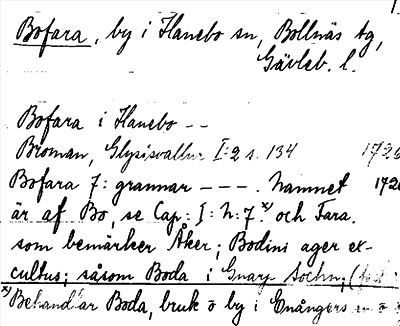 Bofara, by i Hanebo sn, Bollnäs tg,
Gävleb. l.
Bofara i Hanebo --
Broman, Glysisvallur I:2 s. 134 1726
Bofara 7: grannar ---. Namnet 1726
är af Bo, se Cap: I: N: 7.x) och Fara.
som bemärker Åker; Bodini ager ex-
cultus; såsom Boda i Gnarp Sochn;
x) Behandlar Boda, bruk o by i Enångers